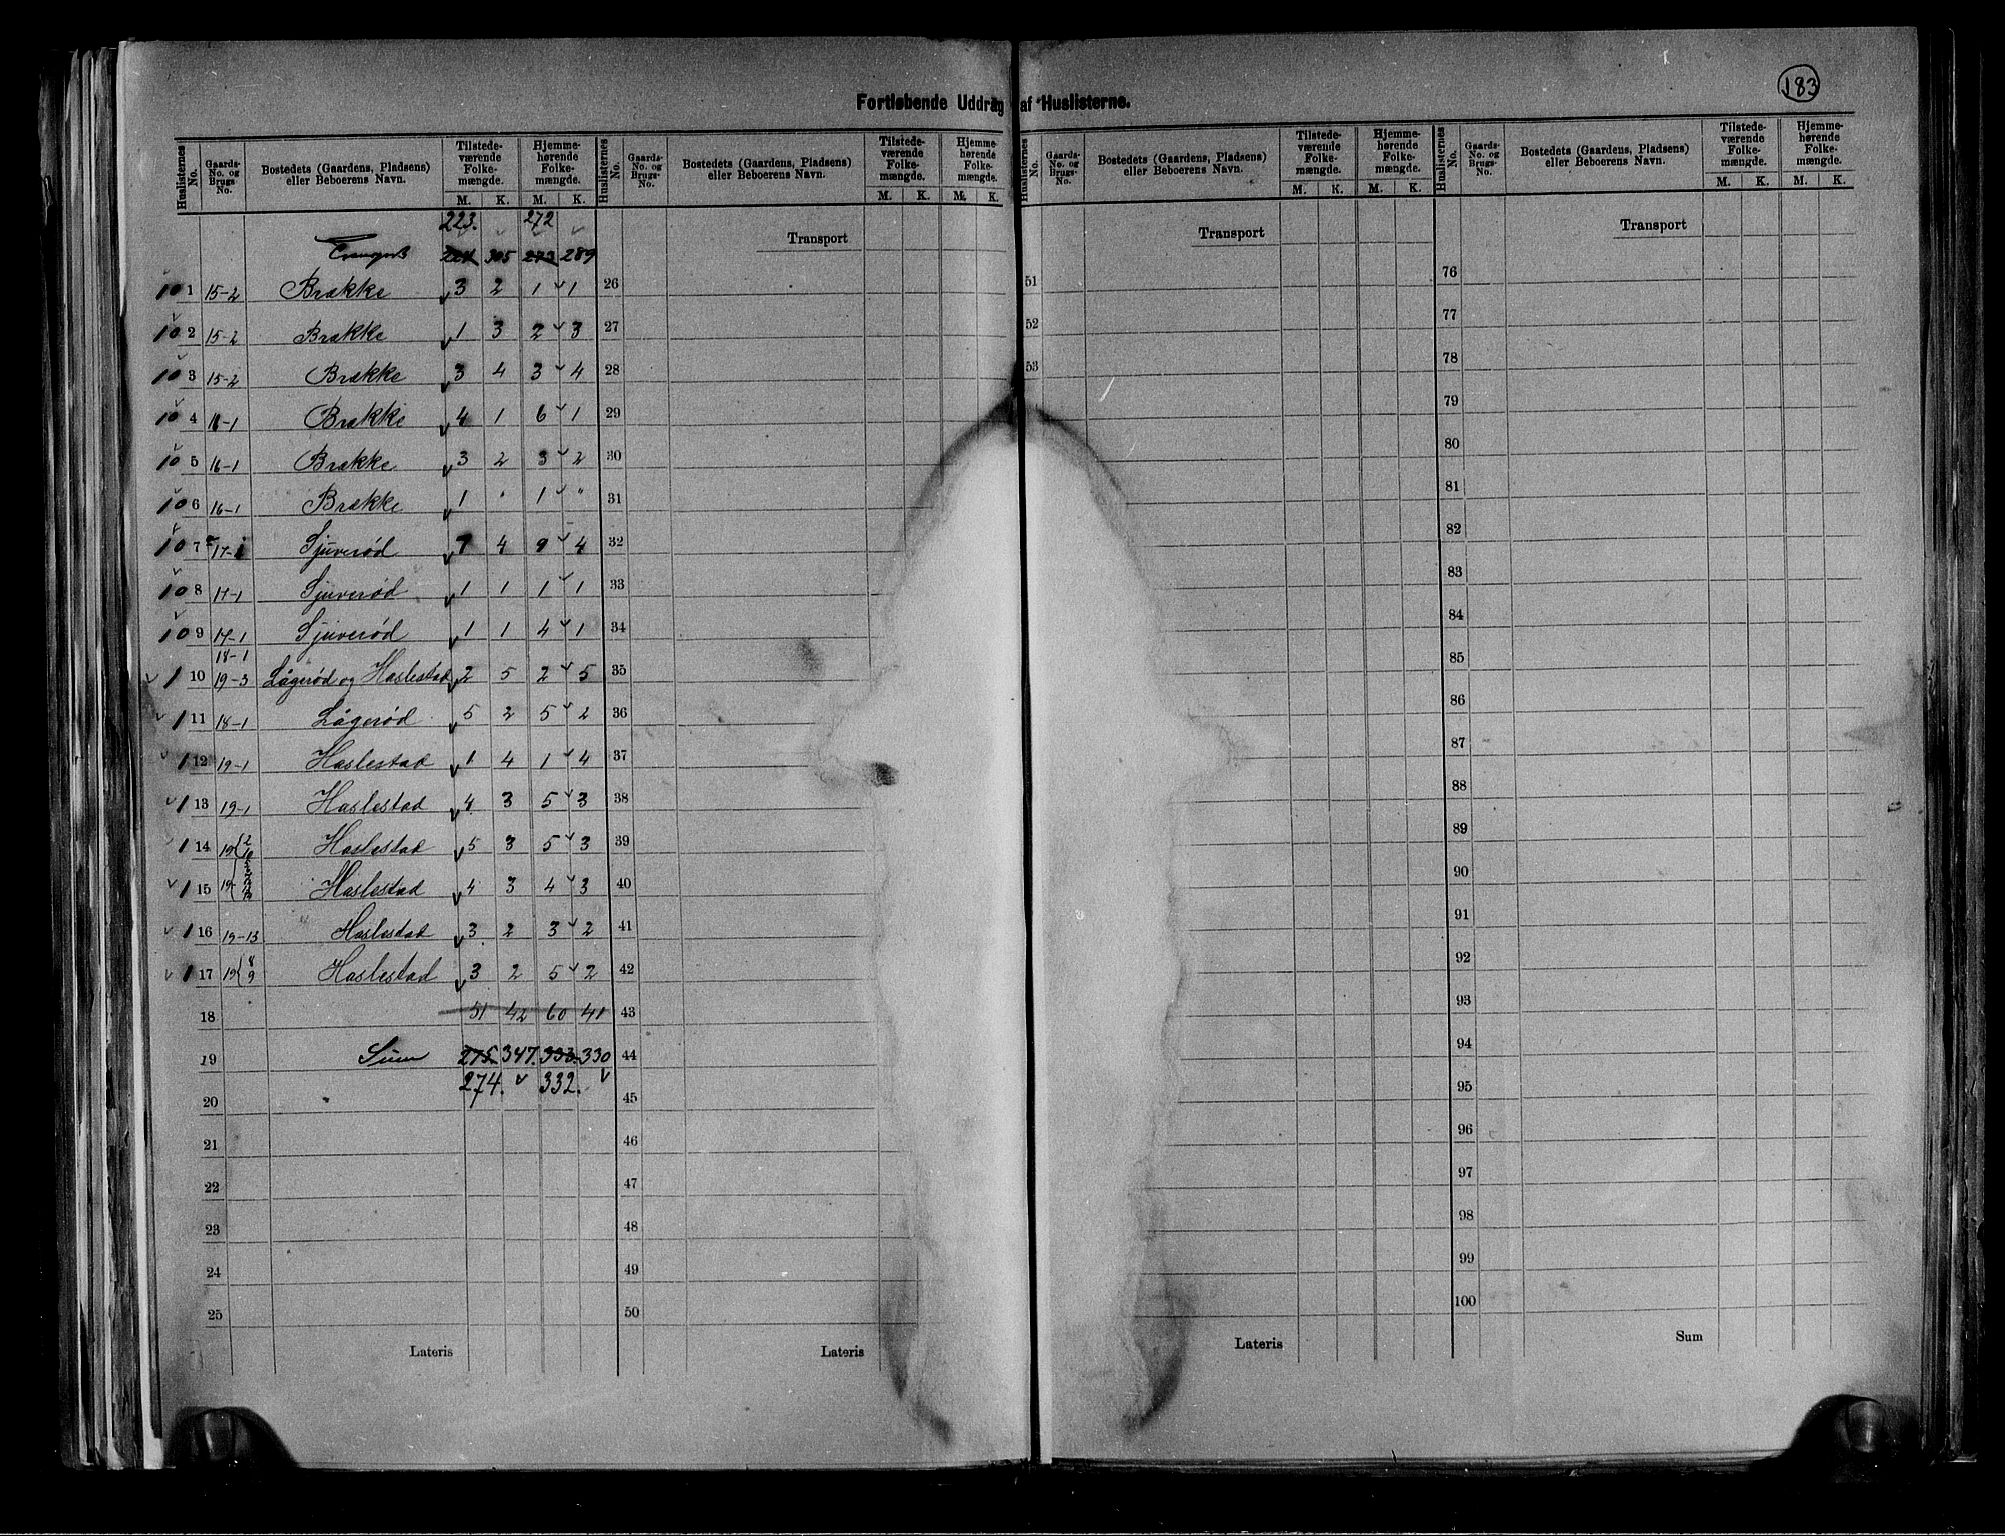 183
Fortløbende Uddrag af Huslisterne.
Huslisternes No. | Gaards-No. og Brugs-No. | Bostedets (Gaardens, Pladsens) eller Beboerens Navn. | Tilstedeværende Folkemængde. M. K. | Hjemmehørende Folkemængde. M. K.
Huslisternes No. | Gaards-No. og Brugs-No. | Bostedets (Gaardens, Pladsens) eller Beboerens Navn. | Tilstedeværende Folkemængde. M. K. | Hjemmehørende Folkemængde. M. K.
Huslisternes No. | Gaards-No. og Brugs-No. | Bostedets (Gaardens, Pladsens) eller Beboerens Navn. | Tilstedeværende Folkemængde. M. K. | Hjemmehørende Folkemængde. M. K.
Huslisternes No. | Gaards-No. og Brugs-No. | Bostedets (Gaardens, Pladsens) eller Beboerens Navn. | Tilstedeværende Folkemængde. M. K. | Hjemmehørende Folkemængde. M. K.
223. 272
224 305 273 289
10 1 15-2 Brække 3 2 1 1
10 2 15-2 Brække 1 3 2 3
10 3 15-2 Brække 3 4 3 4
10 4 16-1 Brække 4 1 6 1
10 5 16-1 Brække 3 2 3 2
10 6 16-1 Brække 1 " 1 "
10 7 17-1 Sjuverød 7 4 9 4
10 8 17-1 Sjuverød 1 1 1 1
10 9 17-1 Sjuverød 1 1 4 1
18-1
1 10 19-3 Lågerød og Haslestad 2 5 2 5
1 11 18-1 Lågerød 5 2 5 2
1 12 19-1 Haslestad 1 4 1 4
1 13 19-1 Haslestad 4 3 5 3
1 14 19{2 10 Haslestad 5 3 5 3
1 15 19- Haslestad 4 3 4 3
1 16 19-13 Haslestad 3 2 3 2
1 17 19{8 9 Haslestad 3 2 5 2
18 51 42 60 41
19 Sum 275 347. 333 330
274. 332.
20
21
22
23
24
25
Lateris
Transport
26
27
28
29
30
31
32
33
34
35
36
37
38
39
40
41
42
43
44
45
46
47
48
49
50
Lateris
Transport
51
52
53
Lateris
Transport
76
77
78
79
80
81
82
83
84
85
86
87
88
89
90
91
92
93
94
95
96
97
98
99
100
Sum